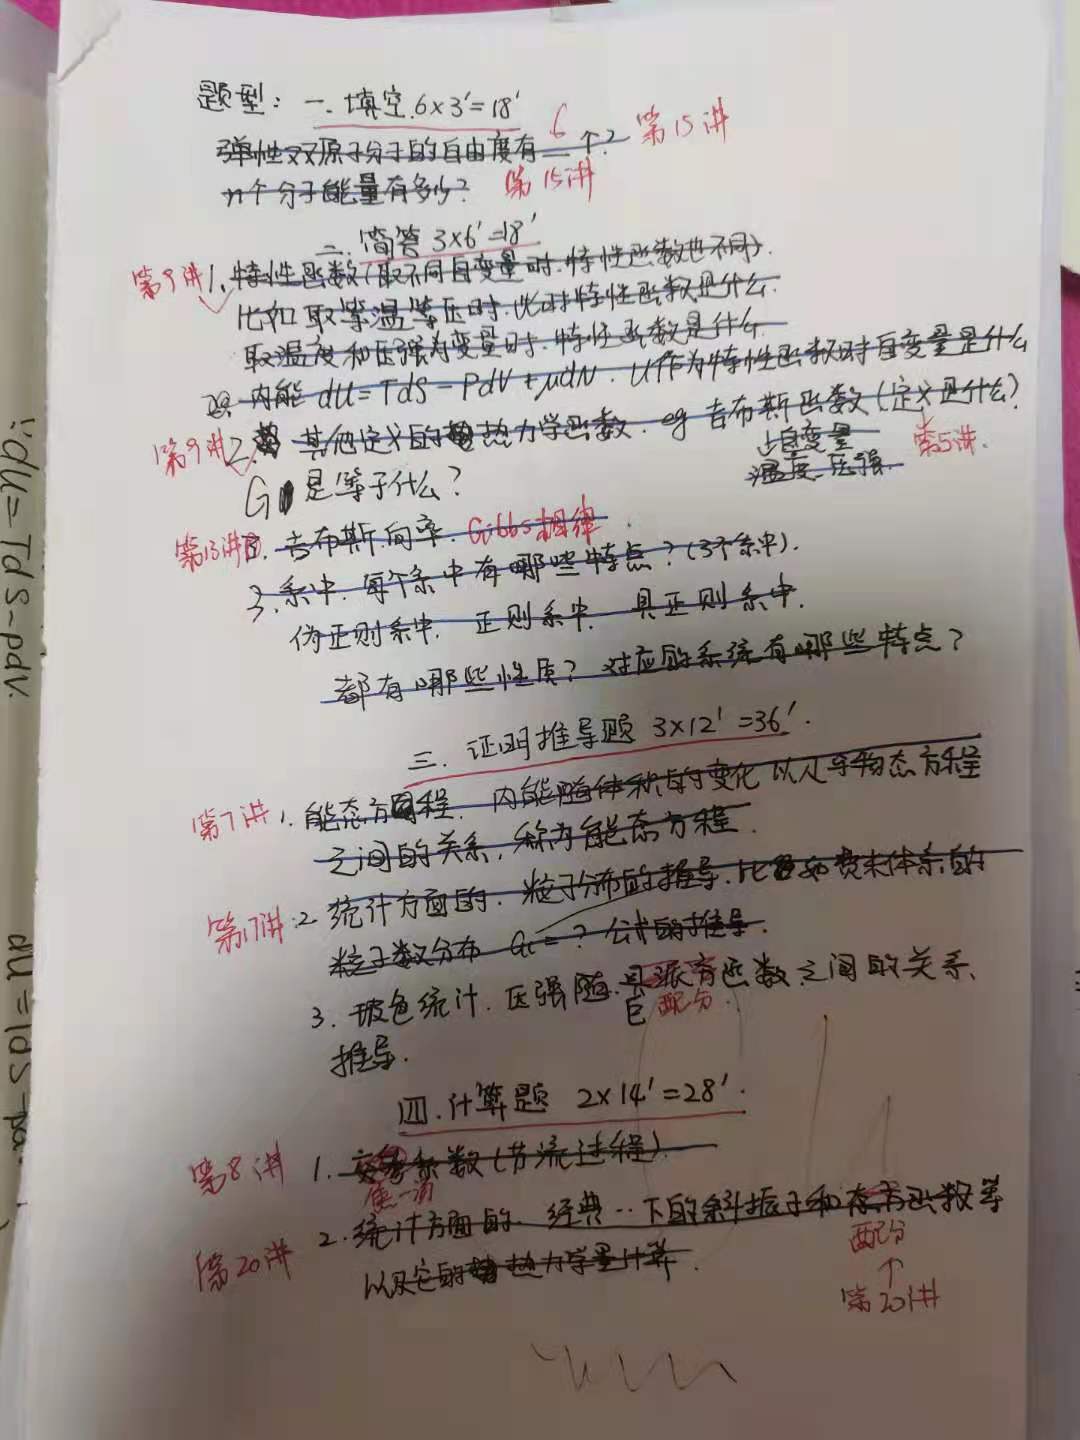 题型：一. 填空. 6×3′=18′
弹性双原子分子的自由度有 6 个？ 第15讲
n个分子能量有多少？ 第15讲
二. 简答 3×6′=18′
第9讲 1. 特性函数(取不同自变量时. 特性函数也不同).
比如取等温等压时. 此时特性函数是什么.
取温度和压强为变量时. 特性函数是什么
eg. 内能 dU=TdS-PdV+μdN. U作为特性函数时自变量是什么
第9讲 2. 其他定义的热力学函数. eg 吉布斯函数(定义是什么？
自变量 第5讲.
温度. 压强.
G 是等于什么？
第13讲 吉布斯.向率. Gibbs相律.
3. 系中. 每个系中有哪些特点？(3个系中).
伪正则系中. 正则系中. 具正则系中.
都有哪些性质？对应的系统有哪些特点？
三. 证明推导题 3×12′=36′.
第7讲 1. 能态方程. 内能随体积的变化以及与物态方程
之间的关系, 称为能态方程.
第17讲 2. 统计方面的. 粒子分布的推导. 比如费米体系的
粒子数分布 = ? 公式的推导.
3. 玻色统计. 压强随 巨 配分函数之间的关系、
推导.
四. 计算题 2×14′=28′.
第8讲 1. 系数(节流过程).
焦一汤
第20讲 2. 统计方面的. 经典…下的斜振子和 函数等
配分
以及它的热力学量计算.
第20讲
du=TdS-pdv.